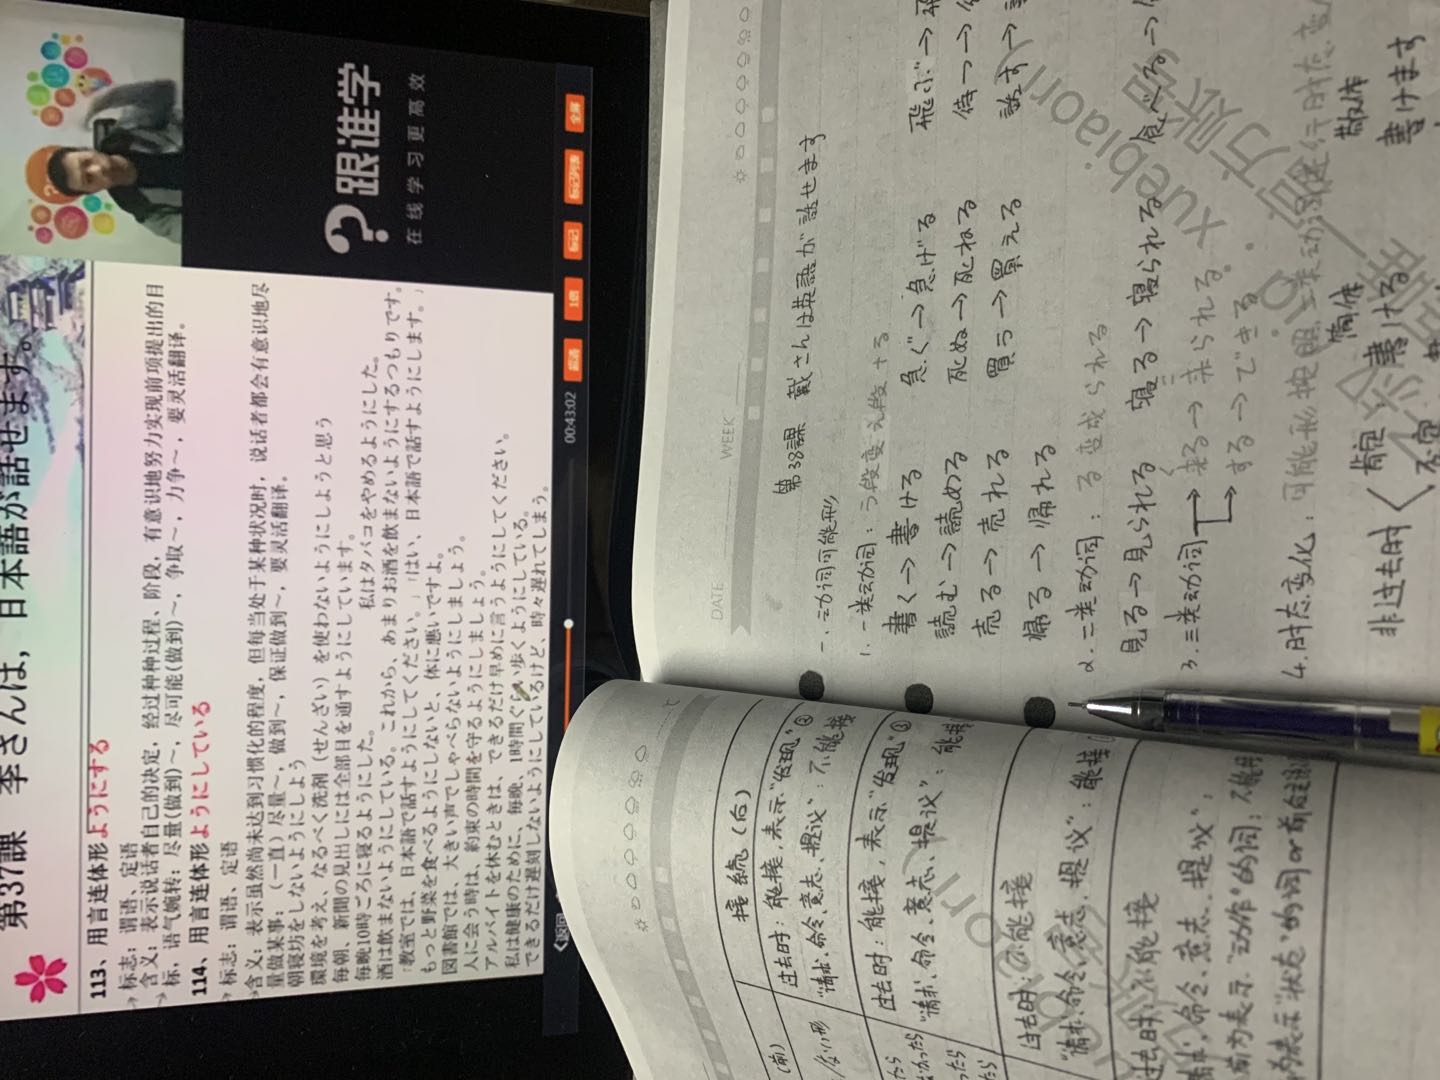 第37課 李さんは，日本語が話せます。
113、用言连体形ようにする
标志：谓语、定语
含义：表示说话者自己的决定，经过种种过程、阶段，有意识地努力实现前项提出的目
标，语气婉转：尽量(做到)～，尽可能(做到)～，争取～，力争～，要灵活翻译。
114、用言连体形ようにしている
标志：谓语、定语
含义：表示虽然尚未达到习惯化的程度，但每当处于某种状况时，说话者都会有意识地尽
量做某事：（一直）尽量～，做到～，保证做到～，要灵活翻译。
朝寝坊をしないようにしよう
環境を考え、なるべく洗剤（せんざい）を使わないようにしようと思う
毎朝、新聞の見出しには全部目を通すようにしています。
毎晩10時ごろに寝るようにした。 私はタバコをやめるようにした。
酒は飲まないようにしている。これから、あまりお酒を飲まないようにするつもりです。
「教室では、日本語で話すようにしてください。」「はい、日本語で話すようにします。」
もっと野菜を食べるようにしないと、体に悪いですよ。
図書館では、大きい声でしゃべらないようにしましょう。
人に会う時は、約束の時間を守るようにしましょう。
アルバイトを休むときは、できるだけ早めに言うようにしてください。
私は健康のために、毎晩、1時間ぐらい歩くようにしている。
できるだけ遅刻しないようにしているけど、時々遅れてしまう。
跟谁学
在线学习更高效
返回 00:43:02 超清 1倍 标记 标记列表 全屏
接続（后）
(前)
过去时：能接，表示“发现”②
“请求、命令、意志、提议”：不能接
ない形
过去时：能接，表示“发现”③
“请求、命令、意志、提议”：能接
たら
なかったら
ったら
たら
过去时：不能接
“请求、命令、意志、提议”：能接
过去时：不能接
请求、命令、意志、提议”：
前为表示“动作”的词：不能接
为表示“状态”的词or前
DATE WEEK
第38課 戴さんは英語が話せます
一、动词可能形
1.一类动词：う段变え段+る
書く→書ける 急ぐ→急げる 飛ぶ→飛
読む→読める 死ぬ→死ねる 待つ→
売る→売れる 買う→買える 話す→
帰る→帰れる
2.二类动词：る变成られる
見る→見られる 寝る→寝られる 食べる→
3.三类动词→来る→来られる
→する→できる
4.时态变化：可能形按照二类动词进行时态变
简体 敬体
非过去时 肯定：書ける 書けます
否定